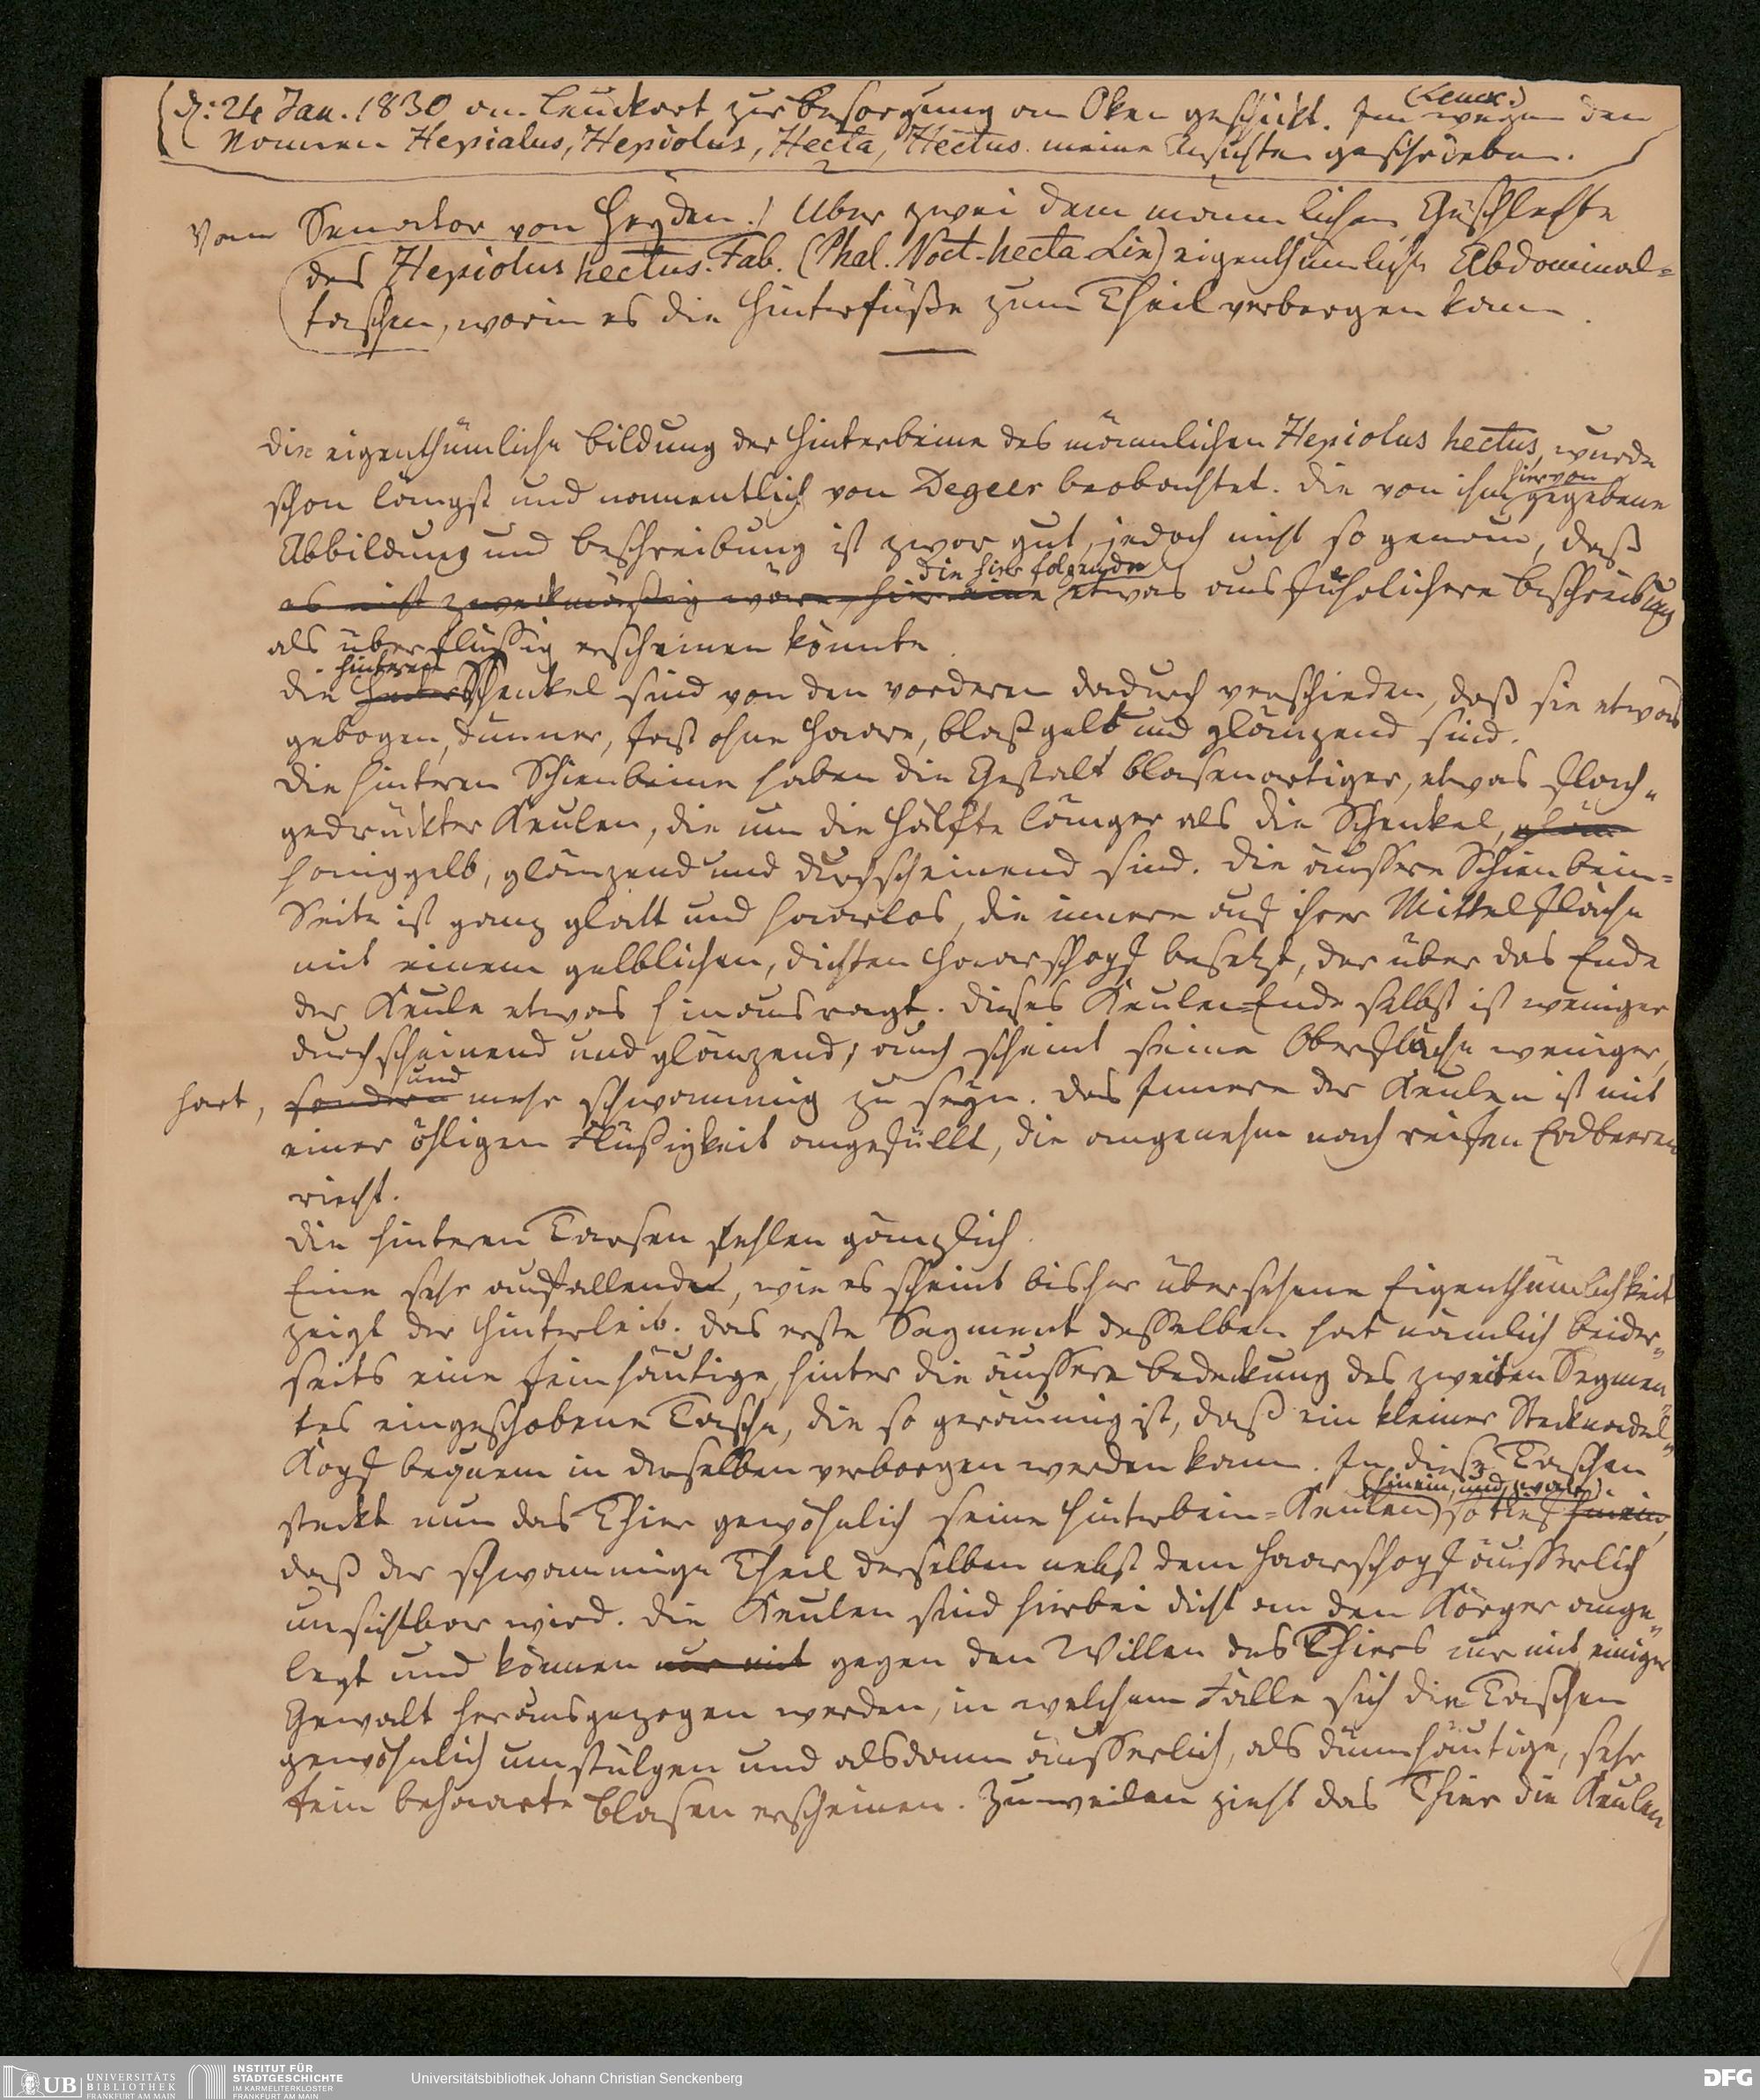 d: 24 Jan. 1830 an Leuckart zur Besorgung an Oken geschickt. Im (Leuck.) wegen den
Namen Hepialus, Hepiolus, Hecta, Hectus meine Ansichten geschrieben.
Vom Senator von Heyden.) Uber zwei dem männlichen Geschlechte
des Hepiolus hectus. Fab. (Phal. Noct. hecta Lin) eigenthümliche Abdominal=
taschen, worin es die Hinterfüße zum Theil verbergen kann.
Die eigenthümliche Bildung der Hinterbeine des männlichen Hepiolus hectus, wurde
schon längst und namentlich von Degeer beobachtet. Die von ihm hiervon gegebene
Abbildung und Beschreibung ist zwar gut, jedoch nicht so genau, daß
es nicht zweckmäßig wäre, hier eine die hier folgende etwas ausführlichere Beschreibung
als überflüßig erscheinen könnte.
Die hinteren Schenkel sind von den vorderen dadurch verschieden, daß sie etwas
gebogen, dünner, fast ohne Haare, blaßgelb und glänzend sind.
Die hinteren Schienbeine haben die Gestalt blasenartiger, etwas flach„
gedrückter Keulen, die um die Hälfte länger als die Schenkel, glän
honiggelb, glänzend und durchscheinend sind. Die äussere Schienbein=
Seite ist ganz glatt und haarlos, die innere auf ihrer Mittelfläche
mit einem gelblichen, dichten Haarschopf besetzt, der über das Ende
der Keule etwas hinausragt. Dieses Keulen=Ende selbst ist weniger
durchscheinend und glänzend; auch scheint seine Oberfläche weniger,
hart, sondern und mehr schwammig zu seyn. Das Innere der Keulen ist mit
einer öhligen Flüßigkeit angefüllt, die angenehm nach reifen Erdbeeren
riecht.
Die hinteren Tarsen fehlen gänzlich.
Eine sehr auffallende, wie es scheint bisher übersehene Eigenthümlichkeit
zeigt der Hinterleib. Das erste Segment desselben hat nämlich beider„
seits eine feinhäutige, hinter die äussere Bedeckung des zweiten Segmen„
tes eingeschobene Tasche, die so geräumig ist, daß ein kleiner Stecknadel„
Kopf bequem in derselben verborgen werden kann. In diese Taschen
steckt nun das Thier gewöhnlich seine Hinterbein=Keulen (hinein, und zwar) so tief hinein,
daß der schwammige Theil derselben nebst dem Haarschopf äusserlich
unsichtbar wird. Die Keulen sind hierbei dicht an den Körper ange„
legt und können nur mit gegen den Willen des Thiers nur mit einiger
Gewalt herausgezogen werden, in welchem Falle sich die Taschen
gewöhnlich umstülpen und alsdann äusserlich, als dünnhäutige, sehr
fein behaarte Blasen erscheinen. Zuweilen zieht das Thier die Keulen
UB UNIVERSITÄTS
BIBLIOTHEK
FRANKFURT AM MAIN
INSTITUT FÜR
STADTGESCHICHTE
IM KARMELITERKLOSTER
FRANKFURT AM MAIN
Universitätsbibliothek Johann Christian Senckenberg
DFG